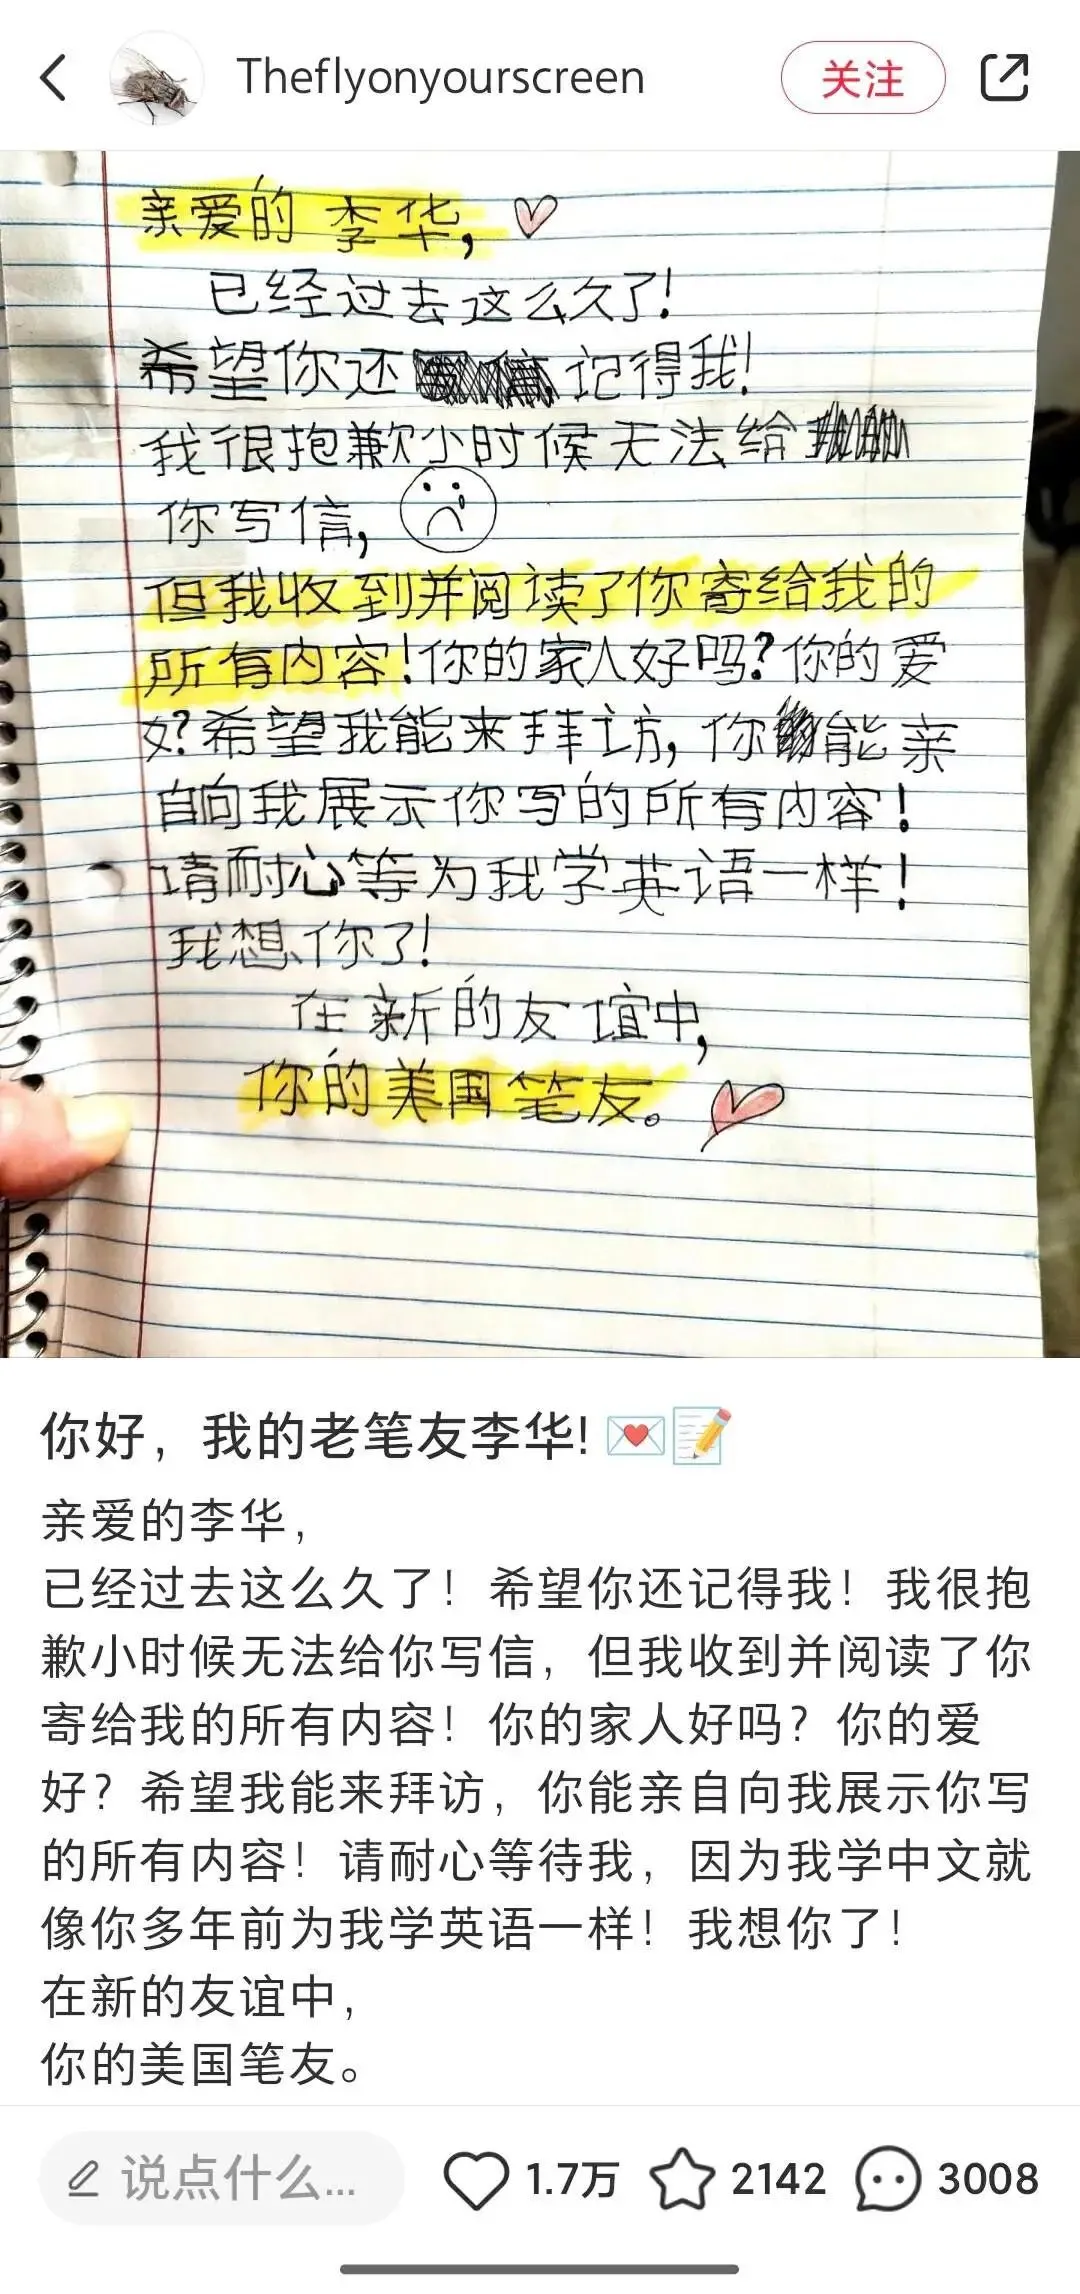 Theflyonyourscreen
关注
亲爱的 李华,
已经过去这么久了!
希望你还 记得我!
我很抱歉小时候无法给
你写信,
但我收到并阅读了你寄给我的
所有内容!你的家人好吗?你的爱
好?希望我能来拜访,你能亲
自向我展示你写的所有内容!
请耐心等为我学英语一样!
我想你了!
在新的友谊中,
你的美国笔友。
你好，我的老笔友李华! 💌📝
亲爱的李华，
已经过去这么久了！希望你还记得我！我很抱
歉小时候无法给你写信，但我收到并阅读了你
寄给我的所有内容！你的家人好吗？你的爱
好？希望我能来拜访，你能亲自向我展示你写
的所有内容！请耐心等待我，因为我学中文就
像你多年前为我学英语一样！我想你了！
在新的友谊中，
你的美国笔友。
说点什么...
1.7万
2142
3008